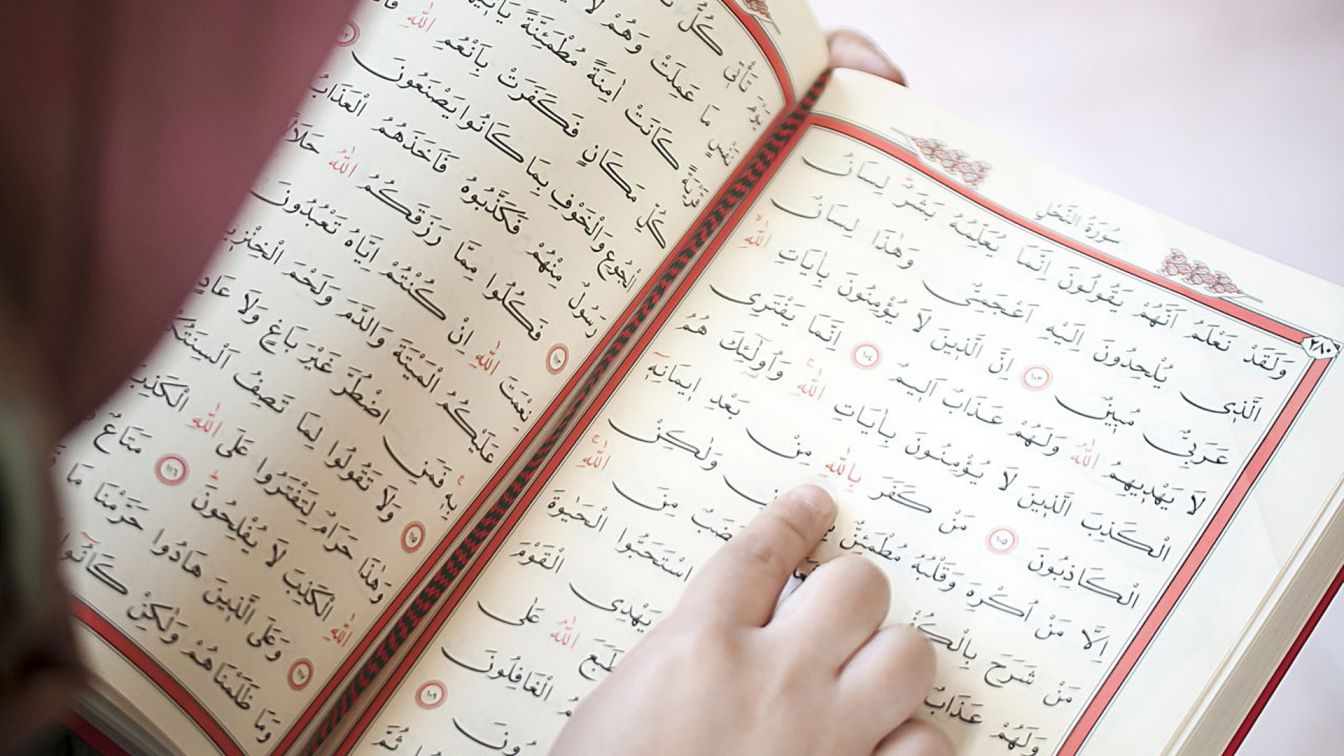 سُورَةُ النَّحْلِ
٢٨٠
وَلَقَدْ نَعْلَمُ اَنَّهُمْ يَقُولُونَ اِنَّمَا يُعَلِّمُهُ بَشَرٌ لِسَانُ
الَّذ۪ي يُلْحِدُونَ اِلَيْهِ اَعْجَمِيٌّ وَهٰذَا لِسَانٌ
عَرَبِيٌّ مُب۪ينٌ ١٠٣ اِنَّ الَّذ۪ينَ لَا يُؤْمِنُونَ بِاٰيَاتِ اللّٰهِۙ
لَا يَهْد۪يهِمُ اللّٰهُ وَلَهُمْ عَذَابٌ اَل۪يمٌ ١٠٤ اِنَّمَا يَفْتَرِي
الْكَذِبَ الَّذ۪ينَ لَا يُؤْمِنُونَ بِاٰيَاتِ اللّٰهِۚ وَاُو۬لٰٓئِكَ هُمُ
الْكَاذِبُونَ ١٠٥ مَنْ كَفَرَ بِاللّٰهِ مِنْ بَعْدِ ا۪يمَانِه۪ٓ
اِلَّا مَنْ اُكْرِهَ وَقَلْبُهُ مُطْمَئِنٌّ وَلٰكِنْ
مَنْ شَرَحَ بِالْكُفْرِ غَضَبٌ مِنَ اللّٰهِۚ
وَلَهُمْ عَذَابٌ اسْتَحَبُّوا الْحَيٰوةَ
يَهْدِي الْقَوْمَ
طَبَعَ اللّٰهُ عَلٰى
الْغَافِلُونَ
١٠٩
ثُمَّ
يَوْمَ تَأْت۪ي كُلُّ
نَفْسٍ مَا عَمِلَتْ وَهُمْ لَا
قَرْيَةً كَانَتْ اٰمِنَةً مُطْمَئِنَّةً يَأْت۪يهَا
كُلِّ مَكَانٍ فَكَفَرَتْ بِاَنْعُمِ اللّٰهِ
الْجُوعِ وَالْخَوْفِ بِمَا كَانُوا يَصْنَعُونَ
رَسُولٌ مِنْهُمْ فَكَذَّبُوهُ فَاَخَذَهُمُ الْعَذَابُ
١١٣ فَكُلُوا مِمَّا رَزَقَكُمُ اللّٰهُ حَلَالًا
نِعْمَتَ اللّٰهِ اِنْ كُنْتُمْ اِيَّاهُ تَعْبُدُونَ
عَلَيْكُمُ الْمَيْتَةَ وَالدَّمَ وَلَحْمَ الْخِنْز۪يرِ
بِه۪ۚ فَمَنِ اضْطُرَّ غَيْرَ بَاغٍ وَلَا عَادٍ
١١٥ وَلَا تَقُولُوا لِمَا تَصِفُ اَلْسِنَتُكُمُ
وَهٰذَا حَرَامٌ لِتَفْتَرُوا عَلَى اللّٰهِ الْكَذِبَ
اللّٰهِ الْكَذِبَ لَا يُفْلِحُونَۜ ١١٦ مَتَاعٌ
١١٧ وَعَلَى الَّذ۪ينَ هَادُوا حَرَّمْنَا مَا
وَمَا ظَلَمْنَاهُمْ وَلٰكِنْ كَانُٓوا